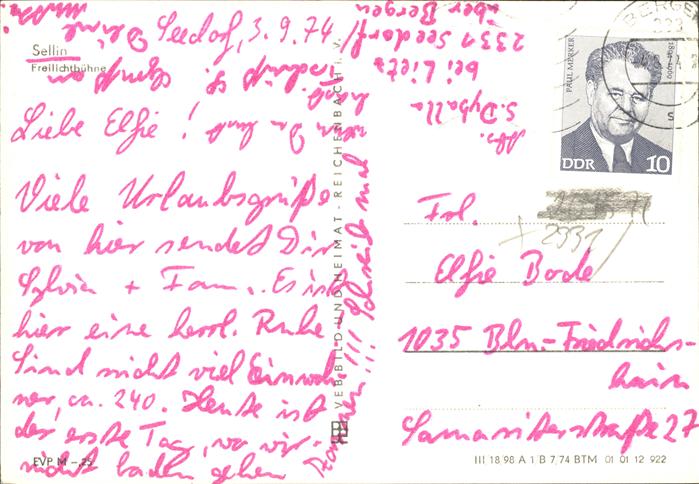 Sellin
Freilichtbühne
Seedorf, 3.9.74
Liebe Elfie!
Viele Urlaubsgrüße
von hier sendet Dir
Sylvia + Fam. Es ist
hier eine herrl. Ruhe
Sind nicht viel Einwoh-
ner, ca. 240. Heute ist
der erste Tag, wo wir
nicht baden gehen
können!!! Schreib mal
Abs.
S. Dyballa
bei Lietz
2331 Seedorf
über Bergen
VEB BILD UND HEIMAT · REICHENBACH I. V.
PAUL MERKER
1894-1969
DDR 10
BERGEN
Frl.
2331
Elfie Bode
1035 Bln.-Friedrichs-
hain
Samariterstraße 27
EVP M -,25
III 18 98 A 1 B 7/74 BTM 01 01 12 922